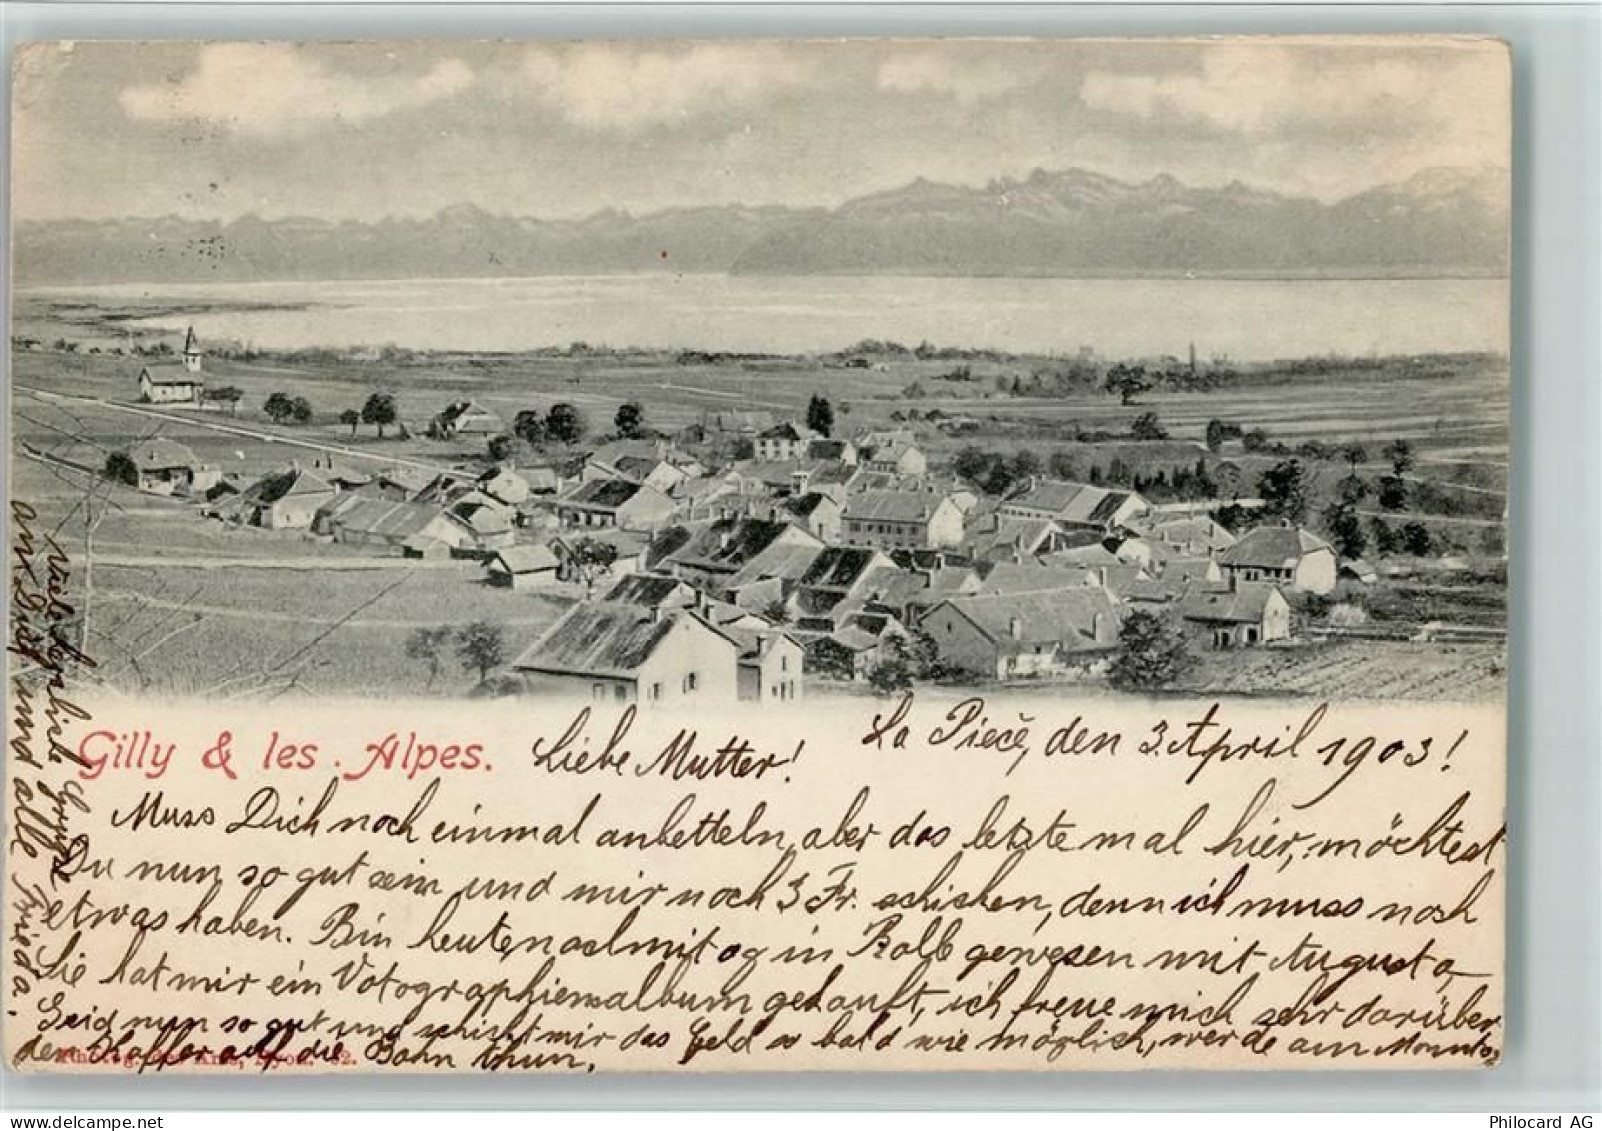 Gilly & les Alpes.
Liebe Mutter!
La Piecě, den 3. April 1903!
Muss Dich noch einmal anbetteln, aber das letzte mal hier, möchtest
Du nun so gut sein und mir noch 3 Fr. schicken, denn ich muss noch
etwas haben. Bin heute nachmittag in Rolle gewesen mit Augusta,
Sie hat mir ein Votographiensalbum gekauft, ich freue mich sehr darüber
Seid nun so gut und schickt mir das Geld so bald wie möglich, werde am Montag
den Koffer auf die Bahn thun.
viele herzliche Grüsse
an Dich und alle Frieda.
Nyon.
Philocard AG
www.delcampe.net